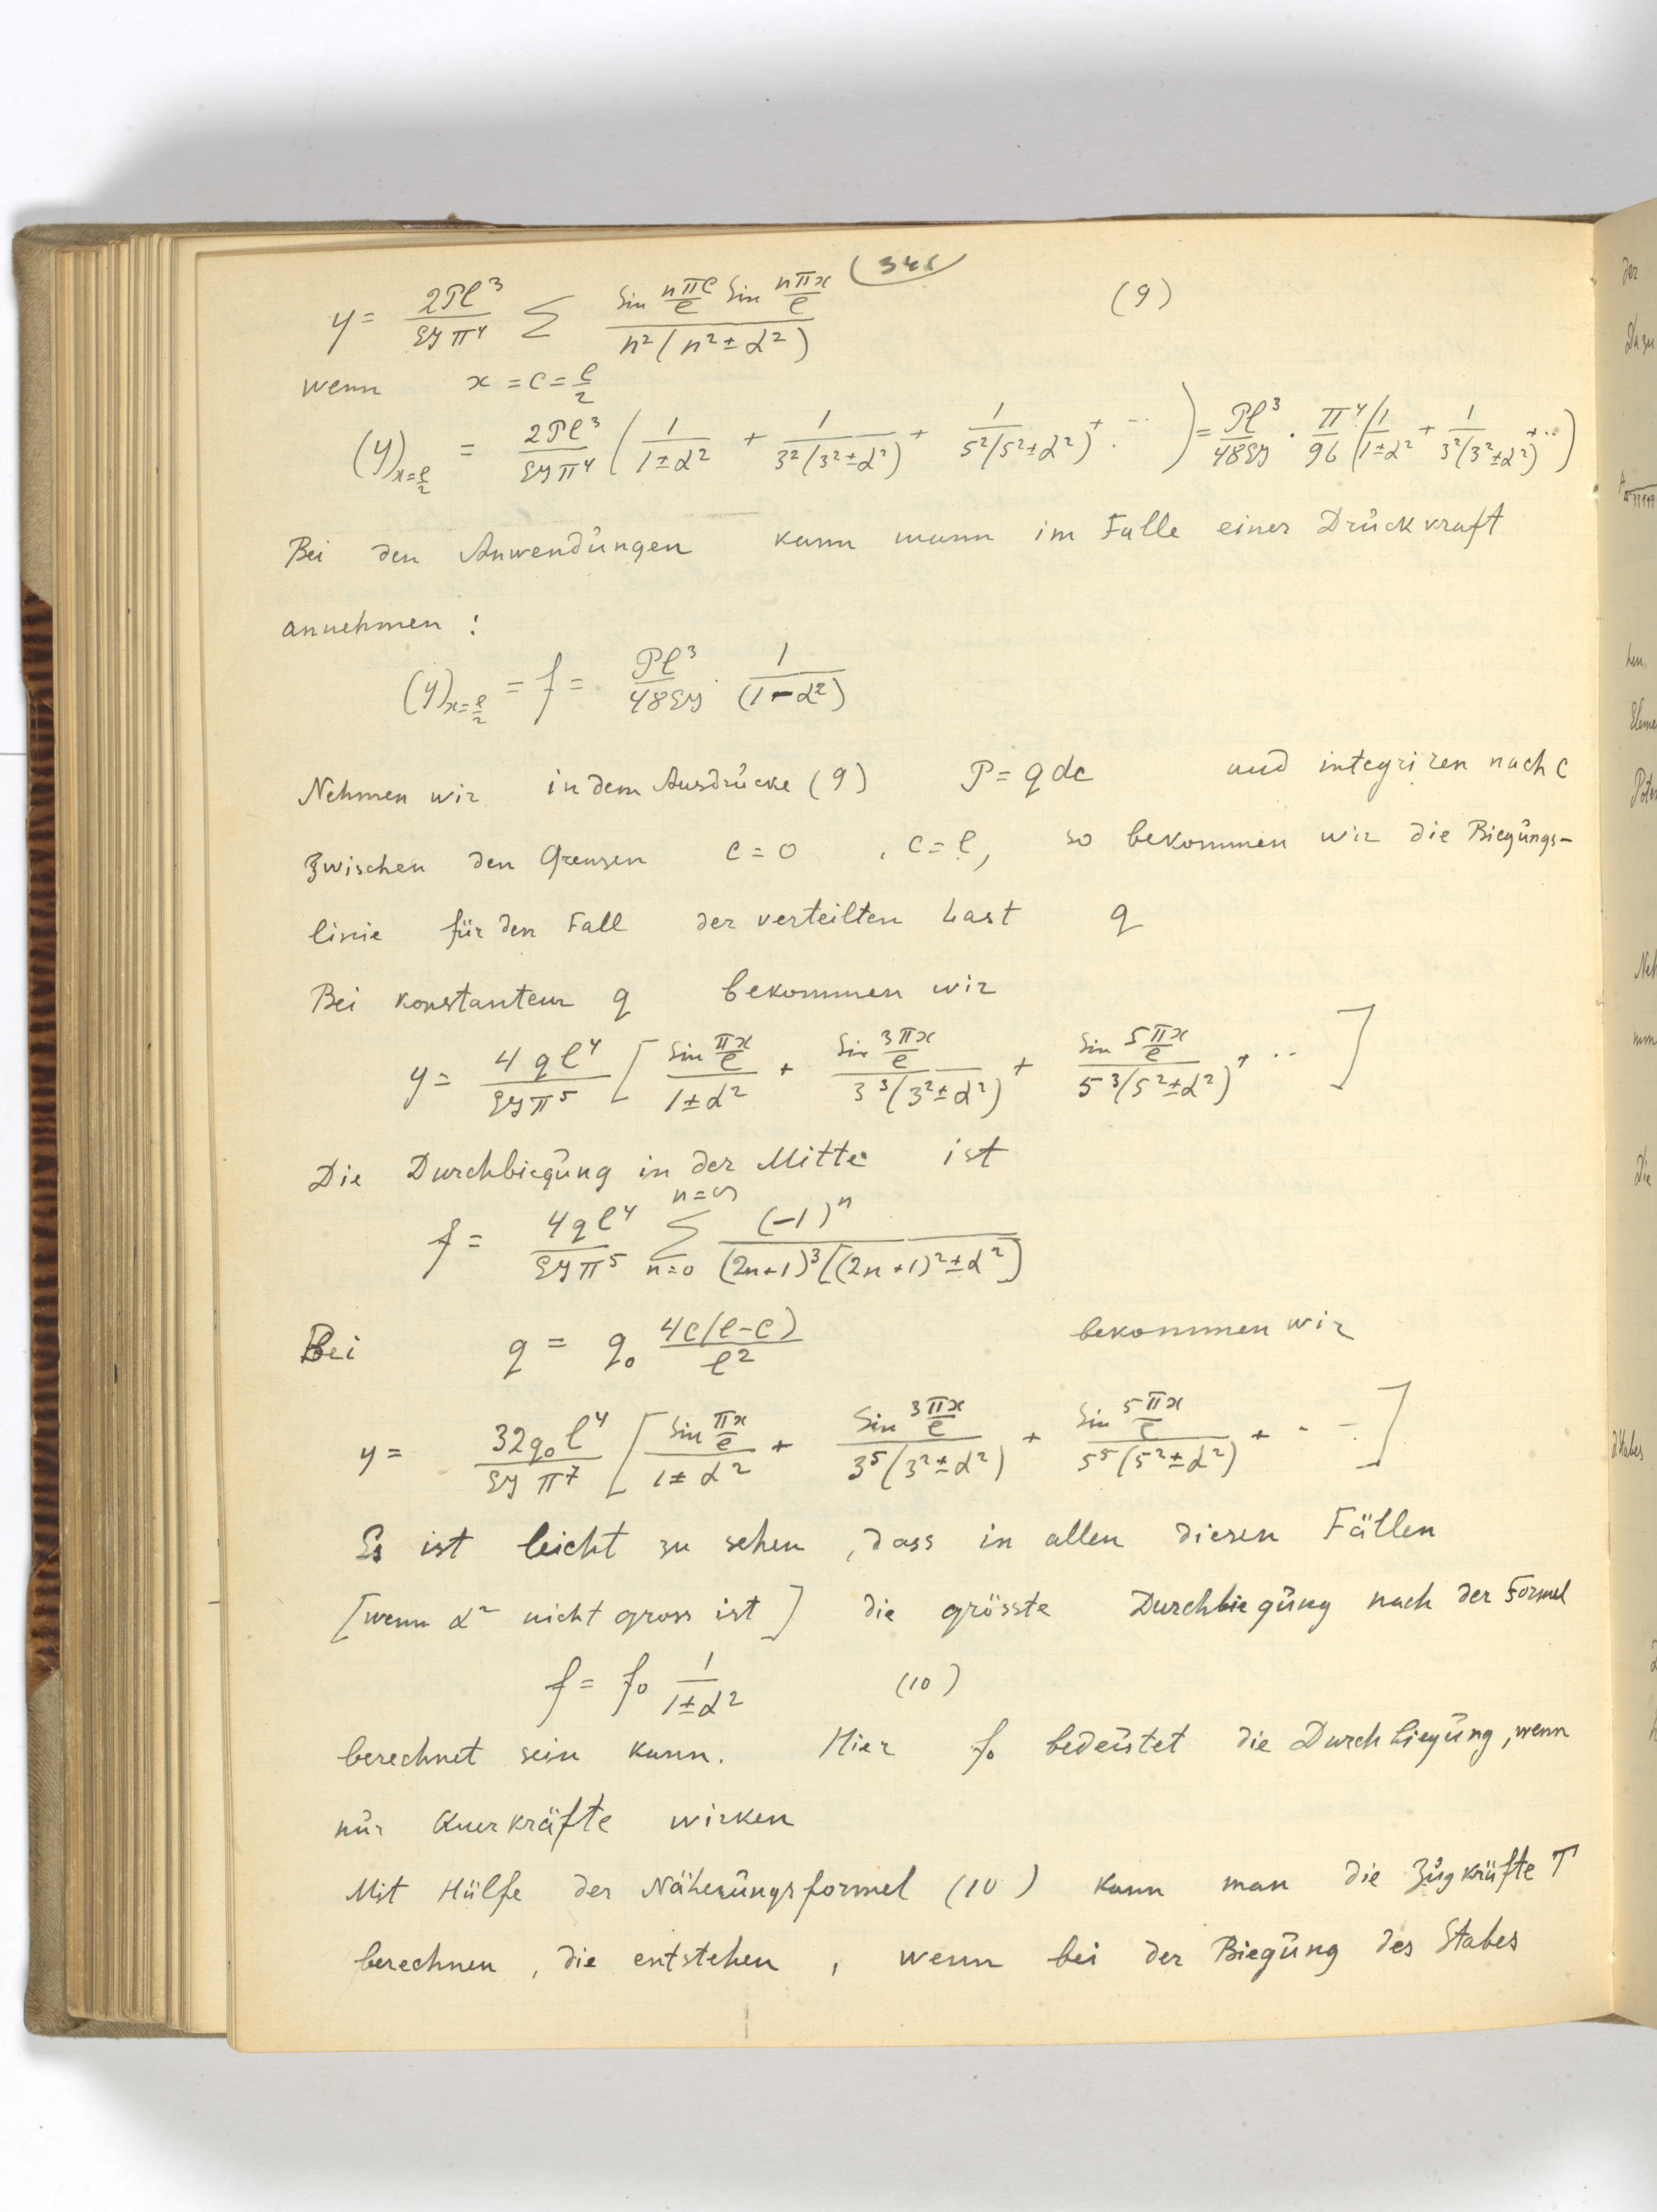 y = 2Pl³/EJπ⁴ ∑ Sin nπc/l Sin nπx/l / n²(n²±α²) (9)
wenn x = c = l/2
(y)x=l/2 = 2Pl³/EJπ⁴ (1/1±α² + 1/3²(3²±α²) + 1/5²(5²±α²) + ··· ) = Pl³/48EJ · π⁴/96 (1/1±α² + 1/3²(3²±α²) + ··)
Bei den Anwendungen kann mann im Falle einer Druckkraft
annehmen :
(y)x=l/2 = f = Pl³/48EJ · 1/(1-α²)
Nehmen wir in dem Ausdrucke (9) P = q dc und integriren nach c
zwischen den Grensen c = 0 , c = l, so bekommen wir die Biegungs-
linie für den Fall der verteilten Last q
Bei konstantem q bekommen wir
y = 4ql⁴/EJπ⁵ [Sin πx/l / 1±α² + Sin 3πx/l / 3³(3²±α²) + Sin 5πx/l / 5³(5²±α²) + ··· ]
Die Durchbiegung in der Mitte ist
f = 4ql⁴/EJπ⁵ ∑ n=0 n=∞ (-1)ⁿ / (2n+1)³[(2n+1)²±α²]
Bei q = q₀ 4c(l-c)/l² bekommen wir
y = 32q₀l⁴/EJπ⁷ [Sin πx/l / 1±α² + Sin 3πx/l / 3⁵(3²±α²) + Sin 5πx/l / 5⁵(5²±α²) + · - -]
Es ist leicht zu sehen , dass in allen diesen Fällen
[wenn α² nicht gross ist ] die grösste Durchbiegung nach der Formel
f = f₀ 1/1±α² (10)
berechnet sein kann. Hier f₀ bedeutet die Durchbiegung, wenn
nur Querkräfte wirken
Mit Hülfe der Näherungsformel (10) kann man die Zugkräfte T
berechnen , die entstehen , wenn bei der Biegung des Stabes